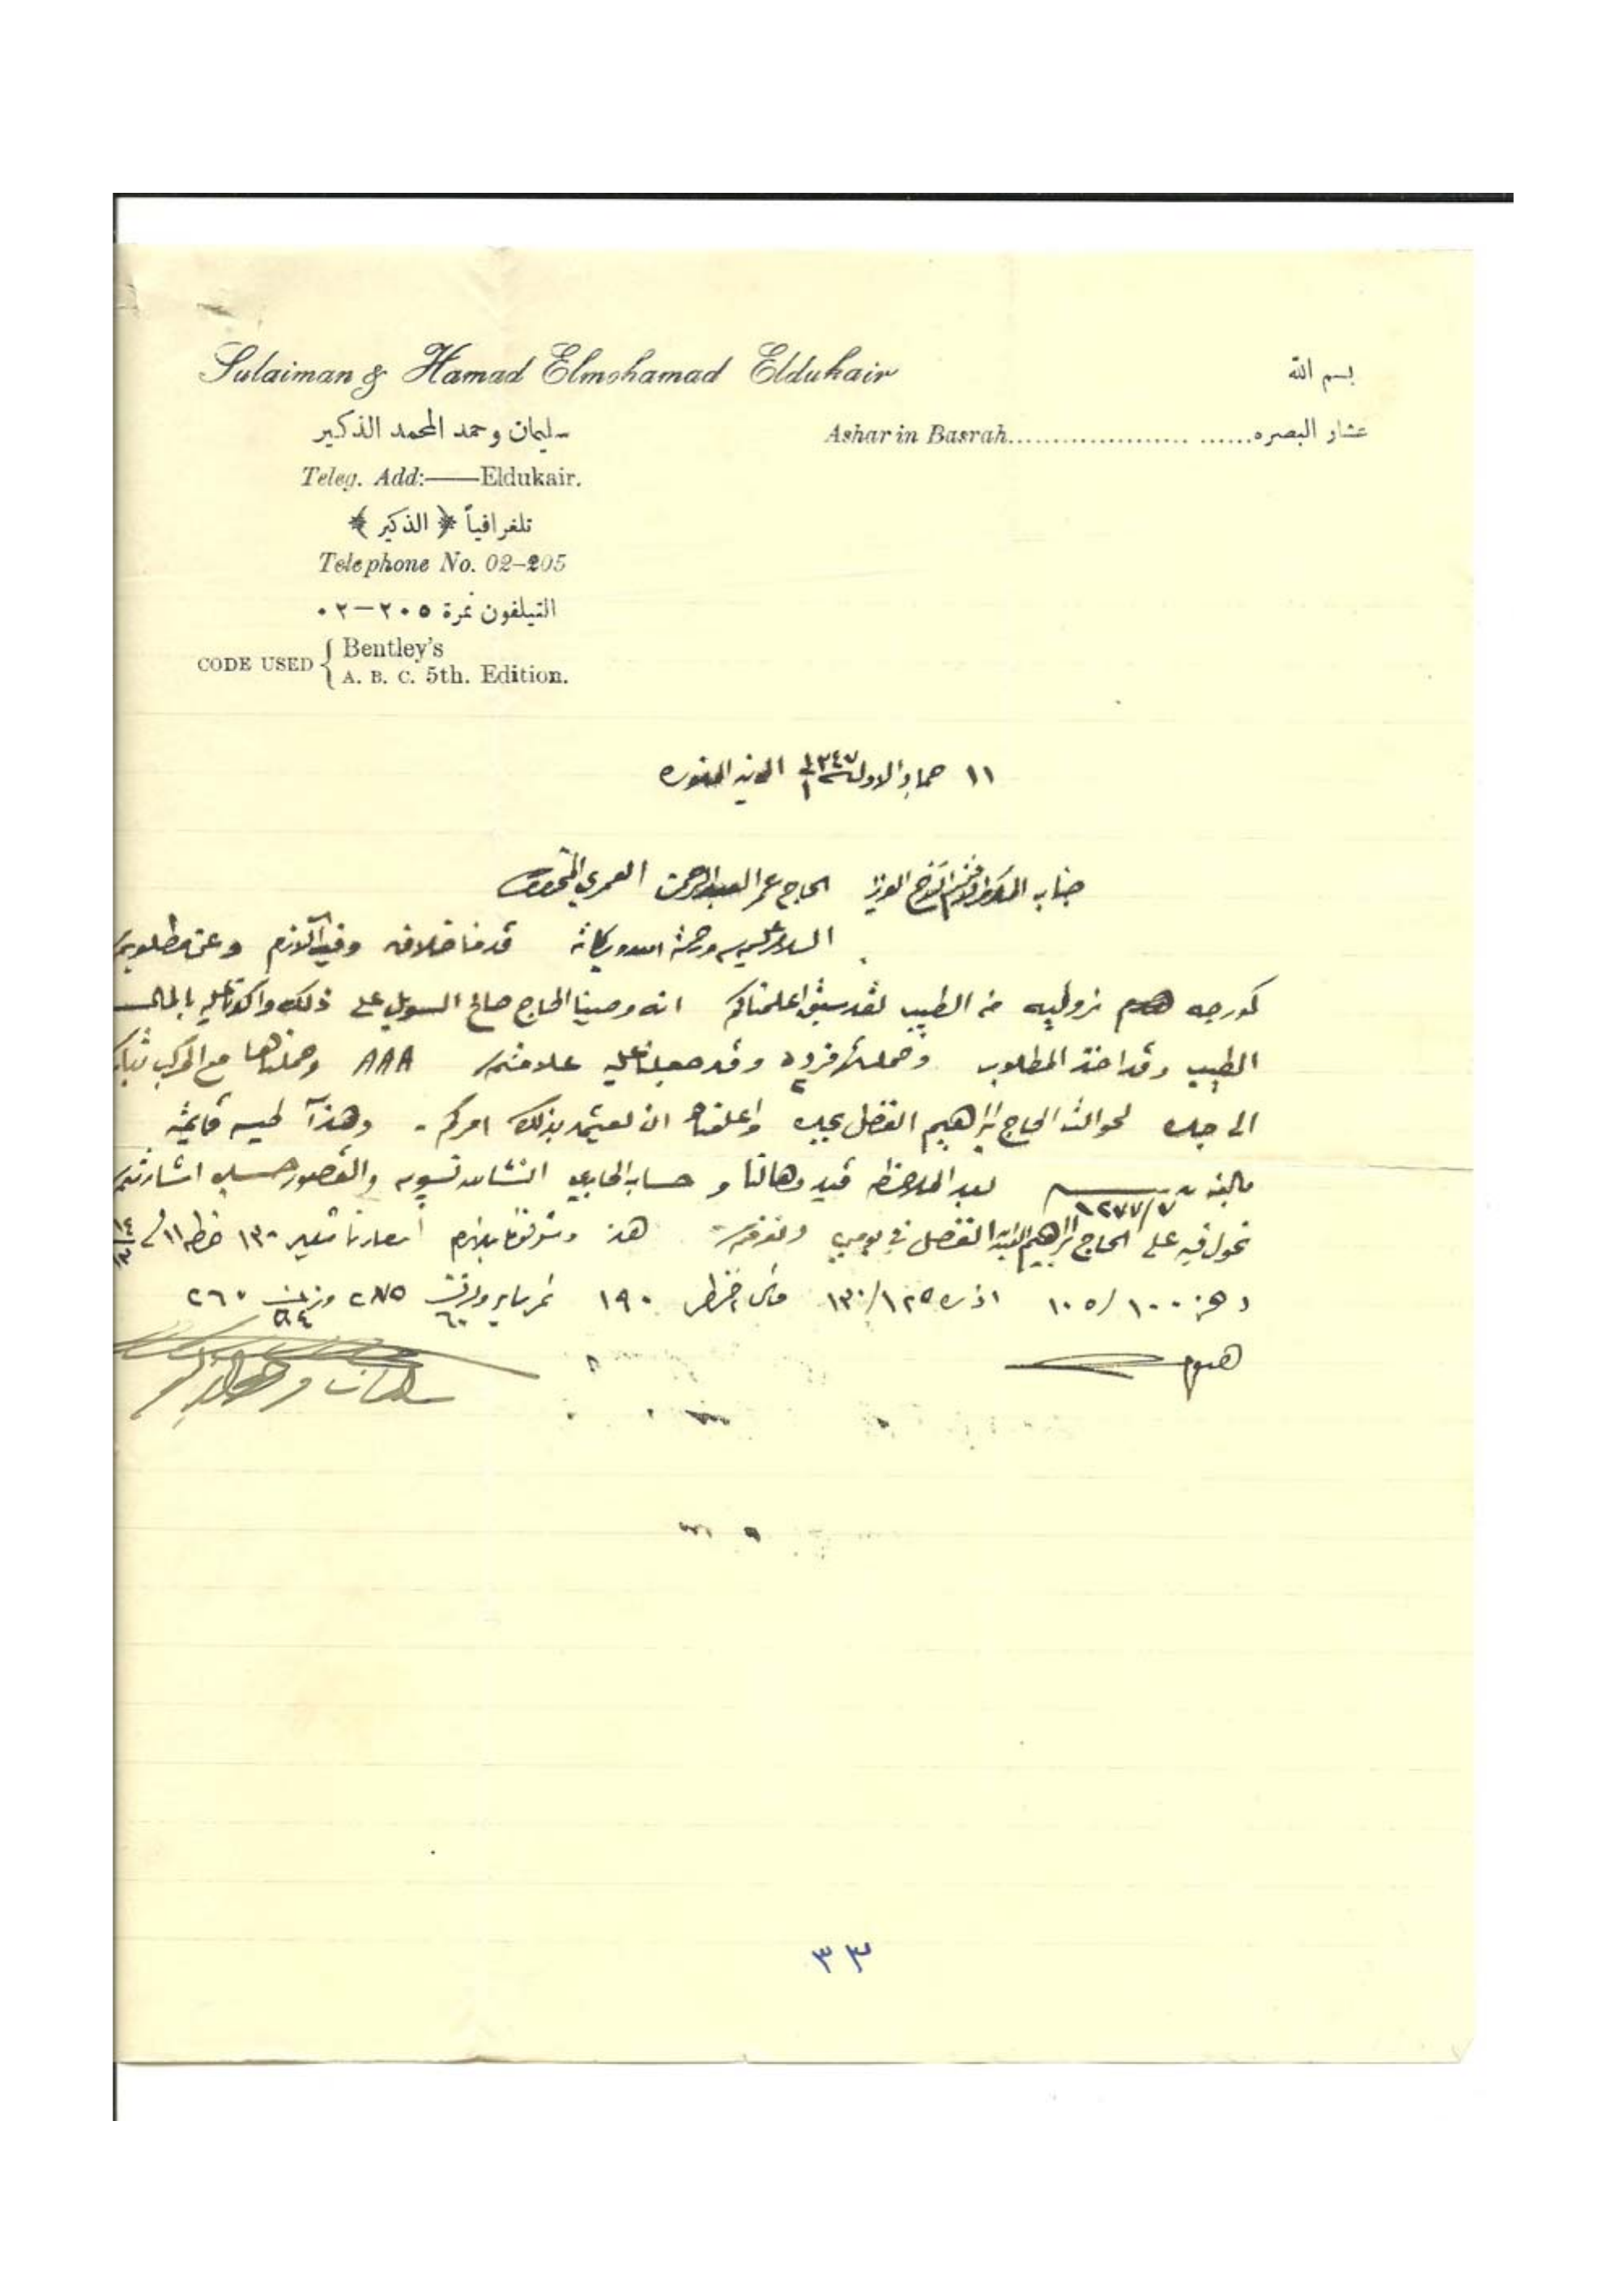 Sulaiman & Hamad Elmohamad Eldukair
بسم الله
سليمان وحمد المحمد الذكير
Ashar in Basrah.............................عشار البصره
Teleg. Add:——Eldukair.
تلغرافياً ﴿ الذكير ﴾
Telephone No. 02-205
التيلفون نمرة ٢٠٥—٠٢
CODE USED { Bentley's
A. B. C. 5th. Edition.
١١ جماد الاول ١٣٤٧ المدينه المنوره
جناب المكرم الافخم الاخ العزيز الحاج عمر العبدالرحمن العمري المحترم
السلام عليكم ورحمة الله وبركاته قدمنا خلافه وفيه اللازم وعن مطلوبكم
كورجه هدم نزوليه من الطيب لقد سبق اعلمناكم انه وصينا الحاج صالح السويل على ذلك واكدنا عليه بالمال
الطيب وقد اخذ المطلوب وحملناه فرده وقد جعلنا عليه علامتكم AAA وحملناها مع المركب
الى جده لحوالة الحاج ابراهيم الفضل بجده واعلمناه ان يعتمد بذلك امركم . وهذا طيه قايمته
مالبنه ١٢٧٧/٧ بعد الملاحظه قيدوها لنا و حساب الجاري انشالله نسويه والقصور حسب اشارتكم
نحول فيه على الحاج ابراهيم الفضل في بومبي ونعرفكم هذا وشرفونا بلازم اسعارنا شعير ١٣٠ حنطه ١١
دهن ١٠٠/١٠٥ اذره ١٢٥/١٣٠ ماش اخضر ١٩٠ تمر ساير ٦٠ ٢٧٥ ٥٤ ٢٦٠
سليمان وحمد الذكير
٣٣